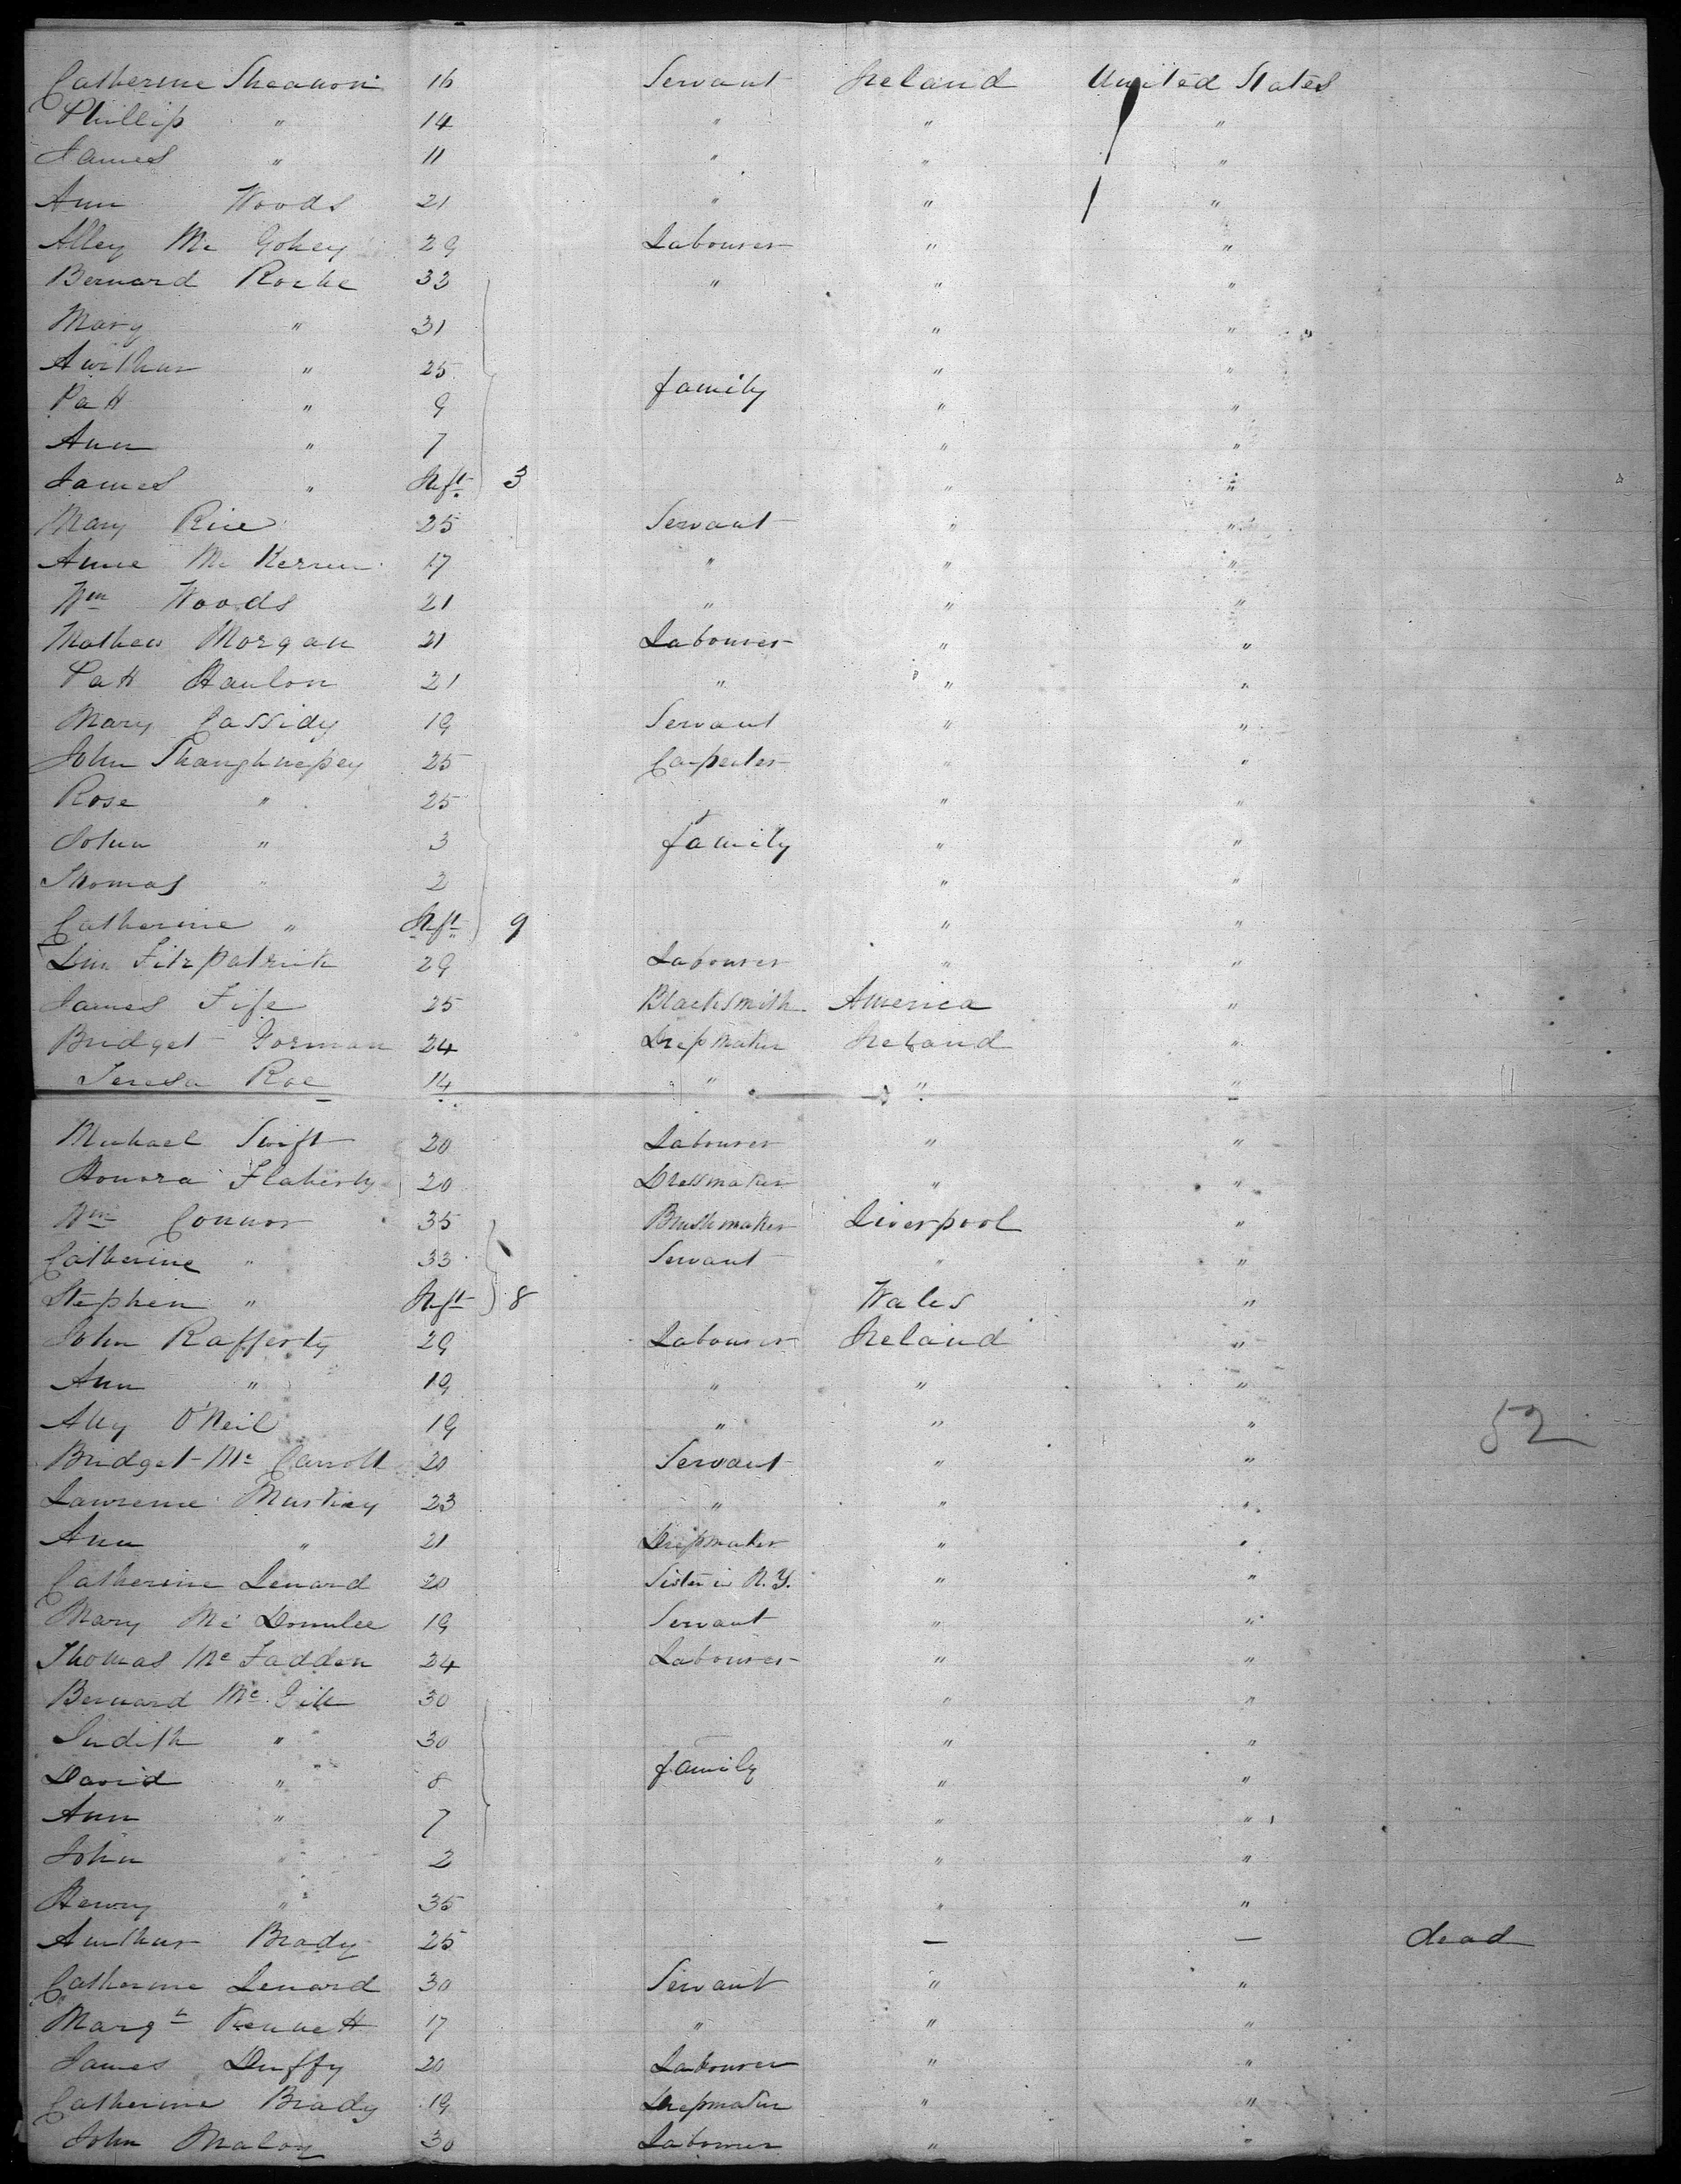 Catherine Sheanon 16 Servant Ireland United States
Phillip " 14 " " "
James " 11 " " "
Ann Woods 21 " " "
Alley Mc Gokey 29 Labourer " "
Bernard Rorke 33 " " "
Mary " 31 " "
Aurthur " 25 " "
family
Patt " 9 " "
Ann " 7 " "
James " Inft 3 " "
Mary Rice 25 Servant " "
Anne Mc Kernen 17 " " "
Wm Woods 21 " " "
Mathew Morgan 21 Labourer " "
Patt Hanlon 21 " " "
Mary Cassidy 19 Servant " "
John Shaughnessey 25 Carpenter " "
Rose " 25 " "
John " 3 family " "
Thomas " 2 " "
Catherine " Inft 9 " "
Fitzpatrick 29 Labourer " "
James Fife 25 Blacksmith America "
Bridget Gorman 24 Dressmaker Ireland "
Teresa Roe 14 " " "
Michael Swift 20 Labourer " "
Honora Flaherty 20 Dressmaker " "
Wm Connor 35 Brushmaker Liverpool "
Catherine " 33 Servant " "
Stephen " Inft 8 Wales "
John Rafferty 29 Labourer Ireland "
Ann " 19 " " "
Ally O'Neil 19 " " "
52
Bridget Mc Carroll 20 Servant " "
Lawrence Murtiey 23 " " "
Ann " 21 Dressmaker " "
Catherine Lenard 20 Sister in N.Y. " "
Mary Mc 19 Servant " "
Thomas Mc Fadden 24 Labourer " "
Bernard Mc Gill 30 " "
Judith " 30 " "
David " 8 family " "
Ann " 7 " "
John " 2 " "
Henry " 35 " "
Aurthur Brady 25 — — dead
Catherine Lenard 30 Servant " "
Margt Kennett 17 " " "
James Duffy 20 Labourer " "
Catherine Brady 19 Dressmaker " "
John Maloy 30 Labourer " "